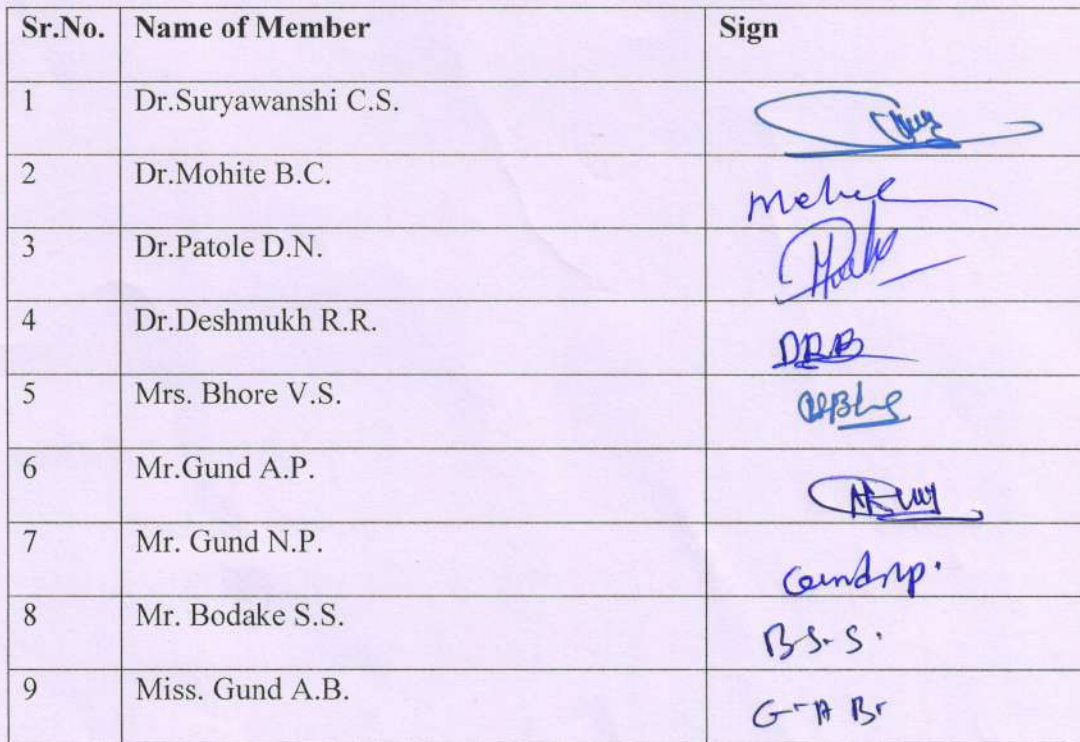 Sr.No. Name of Member Sign
1 Dr.Suryawanshi C.S.
2 Dr.Mohite B.C.
3 Dr.Patole D.N.
4 Dr.Deshmukh R.R. DRB
5 Mrs. Bhore V.S.
6 Mr.Gund A.P.
7 Mr. Gund N.P. Gundnp.
8 Mr. Bodake S.S. B.S.S.
9 Miss. Gund A.B. G.A.B.